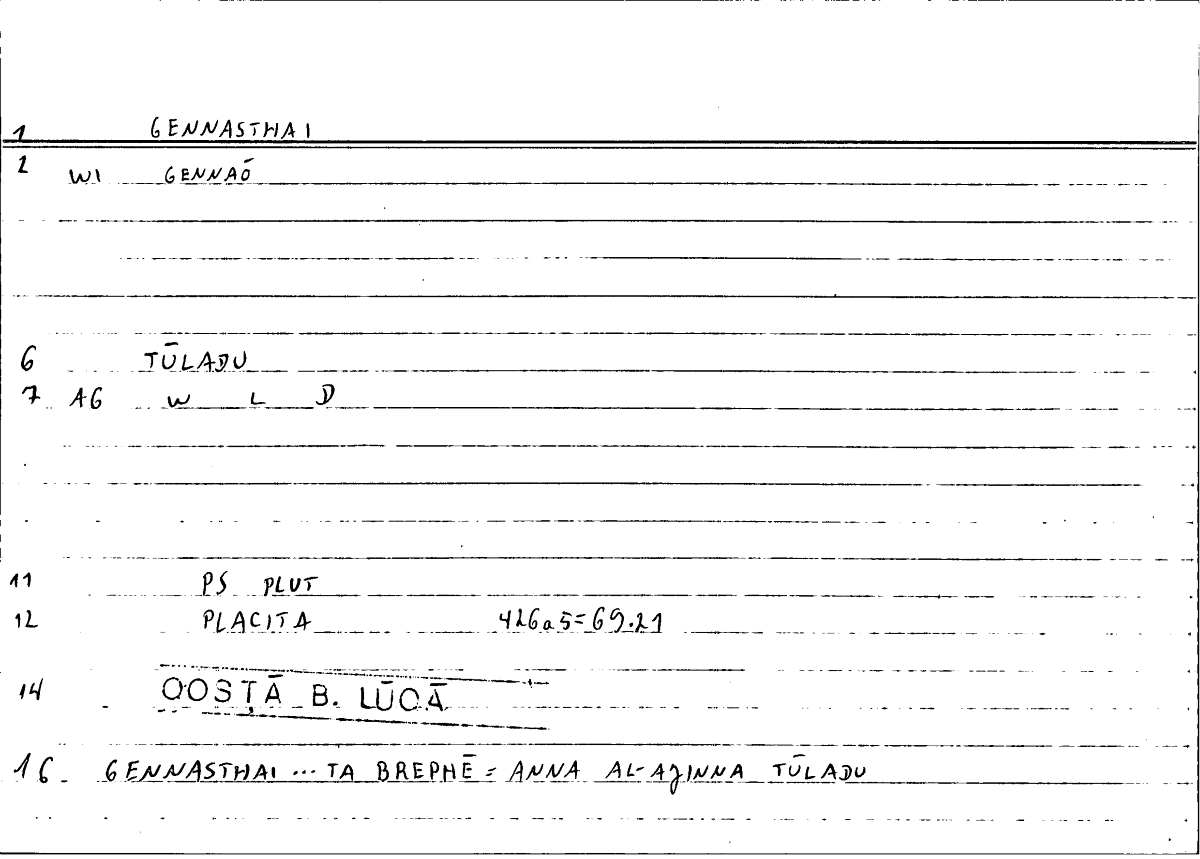 1 GENNASTHAI
2 WI GENNAŌ
6 TŪLADU
7 AG W L D
11 PS PLUT
12 PLACITA 426a5=69.21
14 QOSṬĀ B. LŪQĀ
16 GENNASTHAI ... TA BREPHĒ = ANNA AL-AJINNA TŪLADU